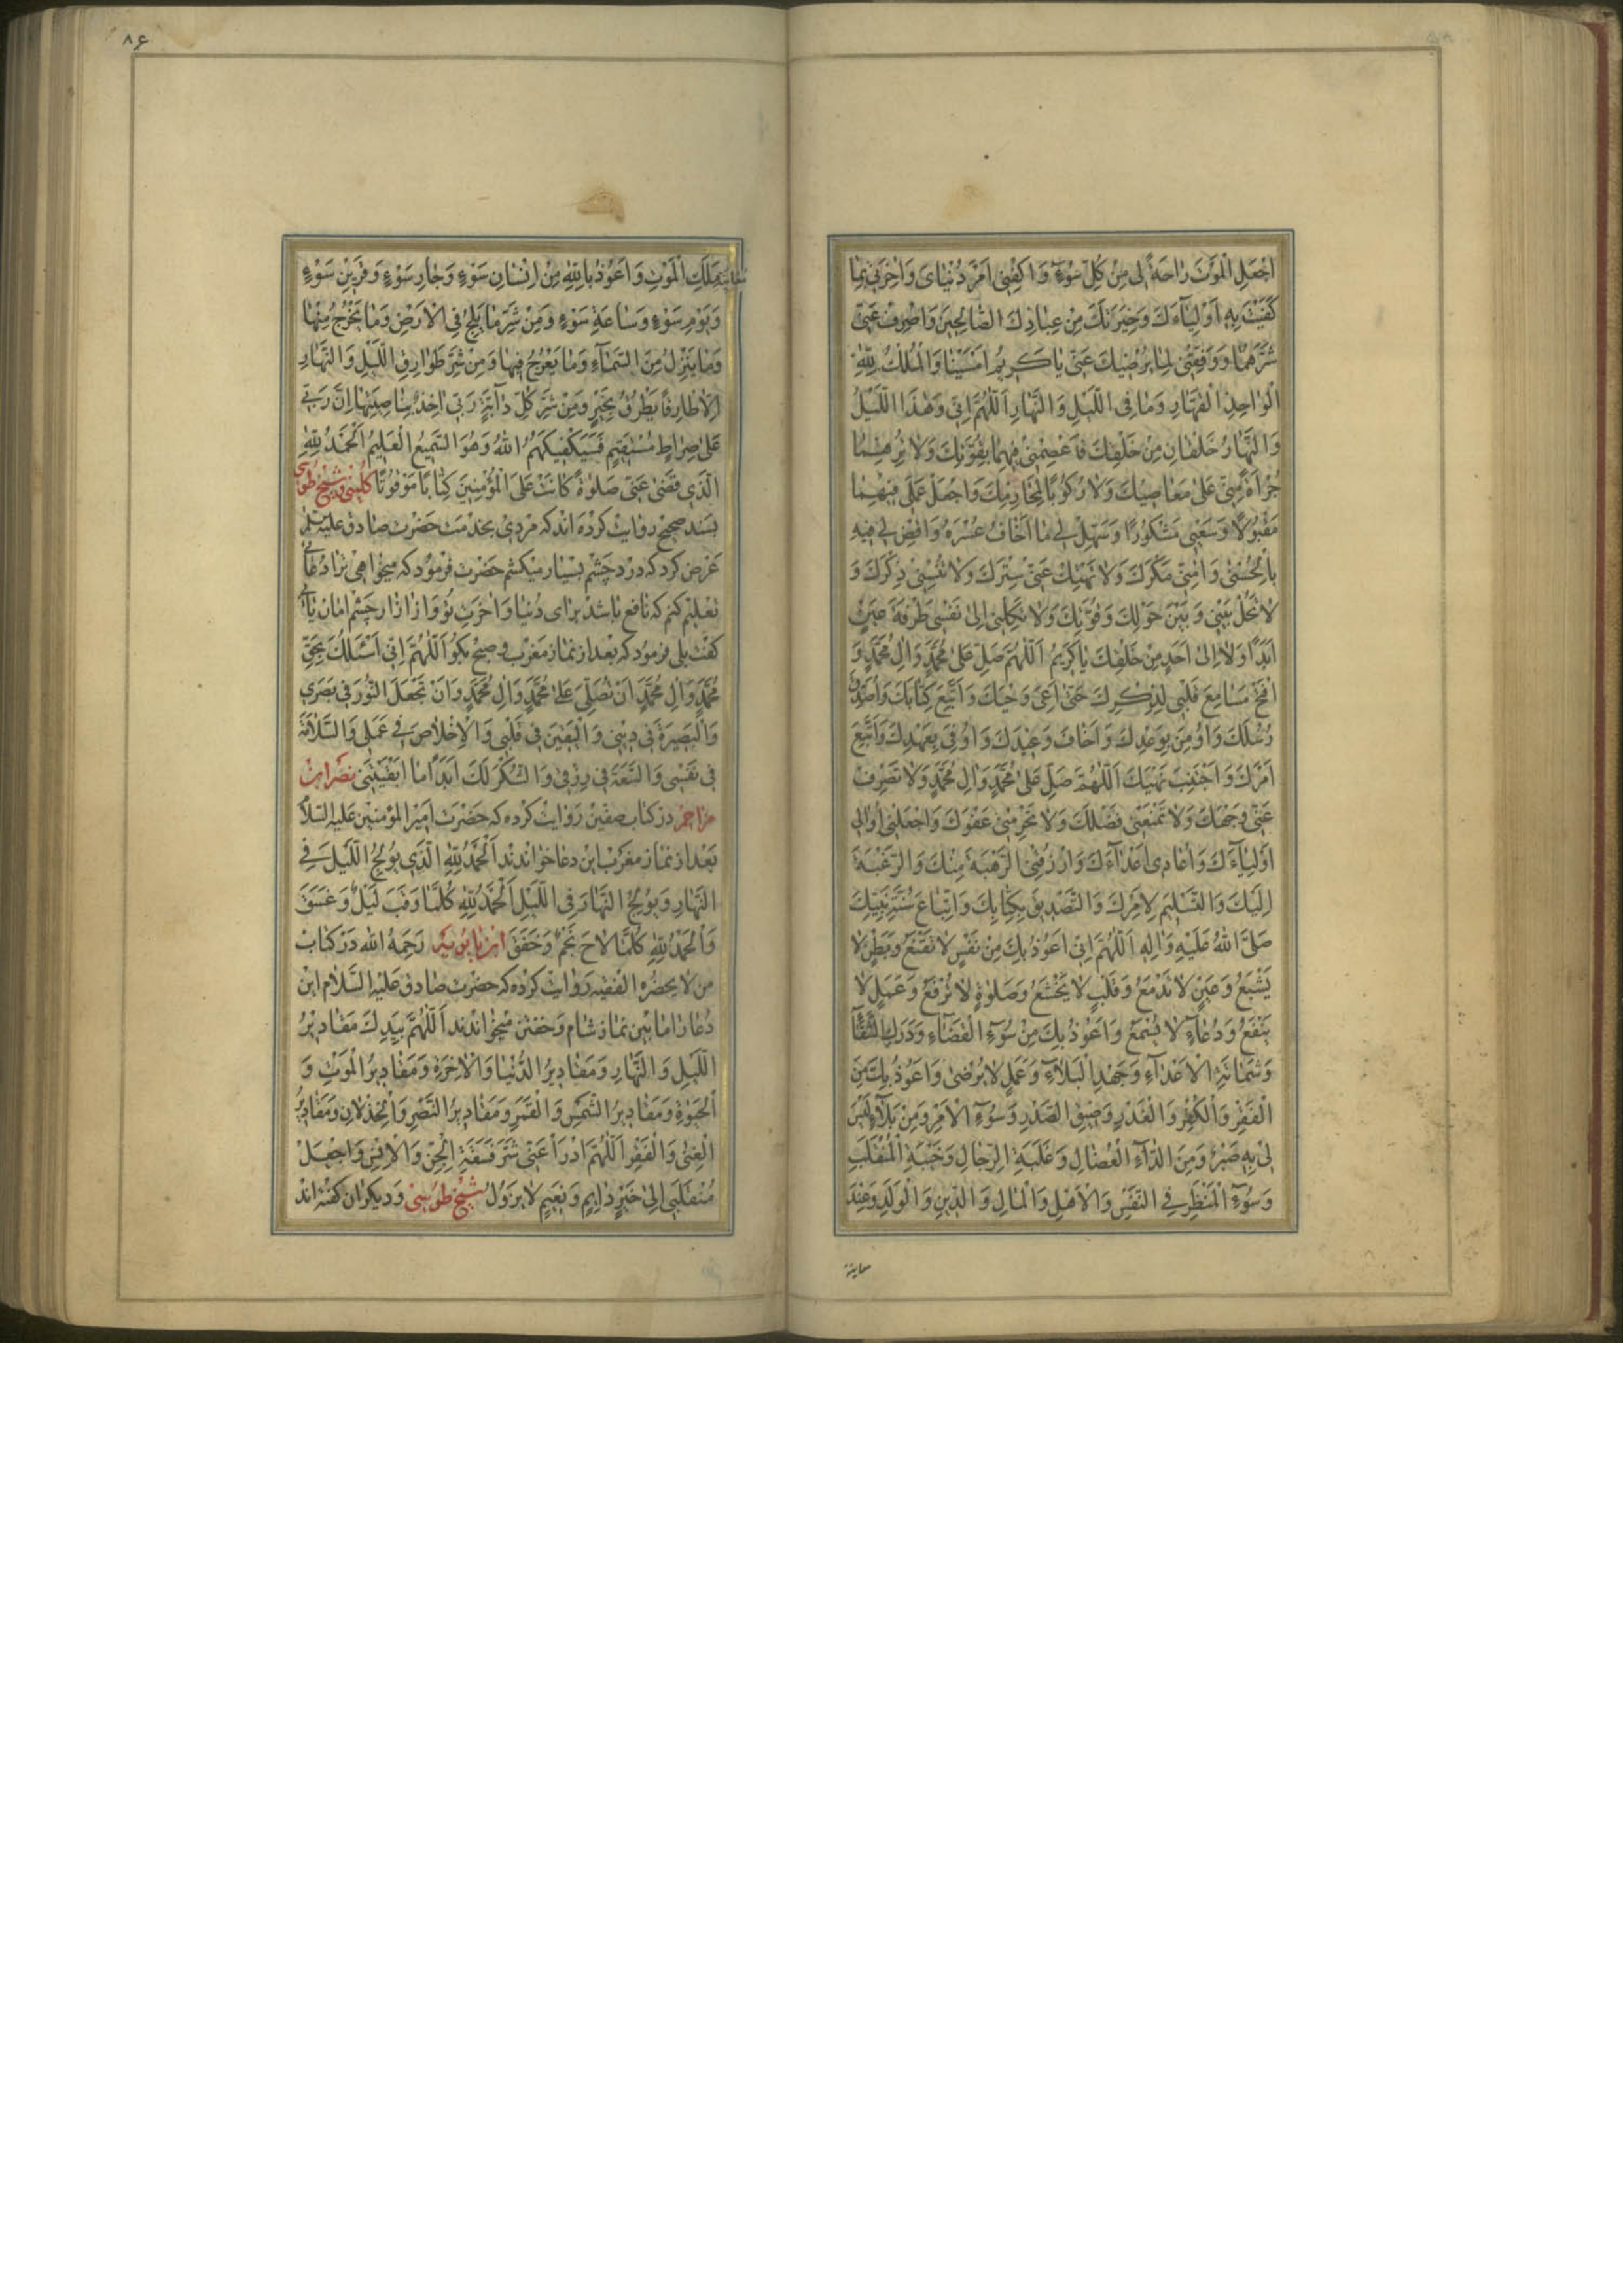 اجْعَلِ الْمَوْتَ رَاحَةً لِي مِنْ كُلِّ سُوءٍ وَاكْفِنِي اَمْرَ دُنْيَايَ وَاٰخِرَتِي بِمَا
كَفَيْتَ بِهِ اَوْلِيَآءَكَ وَخِيَرَتَكَ مِنْ عِبَادِكَ الصَّالِحِينَ وَاصْرِفْ عَنِّي
شَرَّهُمَا وَوَفِّقْنِي لِمَا يُرْضِيكَ عَنِّي يَا كَرِيمُ اَمْسَيْنَا وَالْمُلْكُ لِلّٰهِ
الْوَاحِدِ الْقَهَّارِ وَمَا فِي اللَّيْلِ وَالنَّهَارِ اَللّٰهُمَّ اِنِّي وَهٰذَا اللَّيْلُ
وَالنَّهَارُ خَلْقَانِ مِنْ خَلْقِكَ فَاعْصِمْنِي فِيهِمَا بِقُوَّتِكَ وَلَا تُرِهِمَا
جُرْاَةً مِنِّي عَلٰى مَعَاصِيكَ وَلَا رُكُوبًا لِمَحَارِمِكَ وَاجْعَلْ عَمَلِي فِيهِمَا
مَقْبُولًا وَسَعْيِي مَشْكُورًا وَسَهِّلْ لِي مَا اَخَافُ عُسْرَهُ وَاقْضِ لِي فِيهِ
بِالْحُسْنٰى وَاٰمِنِّي مَكْرَكَ وَلَا تَهْتِكْ عَنِّي سِتْرَكَ وَلَا تُنْسِنِي ذِكْرَكَ وَ
لَا تَحُلْ بَيْنِي وَبَيْنَ حَوْلِكَ وَقُوَّتِكَ وَلَا تَكِلْنِي اِلٰى نَفْسِي طَرْفَةَ عَيْنٍ
اَبَدًا وَلَا اِلٰى اَحَدٍ مِنْ خَلْقِكَ يَا كَرِيمُ اَللّٰهُمَّ صَلِّ عَلٰى مُحَمَّدٍ وَاٰلِ مُحَمَّدٍ وَ
افْتَحْ مَسَامِعَ قَلْبِي لِذِكْرِكَ حَتّٰى اَعِيَ وَحْيَكَ وَاَتَّبِعَ كِتَابَكَ وَاُصَدِّقَ
رُسُلَكَ وَاُومِنَ بِوَعْدِكَ وَاَخَافَ وَعِيدَكَ وَاُوفِيَ بِعَهْدِكَ وَاَتَّبِعَ
اَمْرَكَ وَاَجْتَنِبَ نَهْيَكَ اَللّٰهُمَّ صَلِّ عَلٰى مُحَمَّدٍ وَاٰلِ مُحَمَّدٍ وَلَا تَصْرِفْ
عَنِّي وَجْهَكَ وَلَا تَمْنَعْنِي فَضْلَكَ وَلَا تَحْرِمْنِي عَفْوَكَ وَاجْعَلْنِي اُوَالِي
اَوْلِيَآءَكَ وَاُعَادِي اَعْدَآءَكَ وَارْزُقْنِي الرَّهْبَةَ مِنْكَ وَالرَّغْبَةَ
اِلَيْكَ وَالتَّسْلِيمَ لِاَمْرِكَ وَالتَّصْدِيقَ بِكِتَابِكَ وَاتِّبَاعَ سُنَّةِ نَبِيِّكَ
صَلَّى اللّٰهُ عَلَيْهِ وَاٰلِهِ اَللّٰهُمَّ اِنِّي اَعُوذُ بِكَ مِنْ نَفْسٍ لَا تَقْنَعُ وَبَطْنٍ لَا
يَشْبَعُ وَعَيْنٍ لَا تَدْمَعُ وَقَلْبٍ لَا يَخْشَعُ وَصَلٰوةٍ لَا تُرْفَعُ وَعَمَلٍ لَا
يَنْفَعُ وَدُعَآءٍ لَا يُسْمَعُ وَاَعُوذُ بِكَ مِنْ سُوءِ الْقَضَآءِ وَدَرَكِ الشَّقَآءِ
وَشَمَاتَةِ الْاَعْدَآءِ وَجَهْدِ الْبَلَآءِ وَعَمَلٍ لَا يُرْضٰى وَاَعُوذُ بِكَ مِنَ
الْفَقْرِ وَالْكُفْرِ وَالْغَدْرِ وَضِيقِ الصَّدْرِ وَسُوءِ الْاَمْرِ وَمِنْ بَلَآءٍ لَيْسَ
لِي بِهِ صَبْرٌ وَمِنَ الدَّآءِ الْعُضَالِ وَغَلَبَةِ الرِّجَالِ وَخَيْبَةِ الْمُنْقَلَبِ
وَسُوءِ الْمَنْظَرِ فِي النَّفْسِ وَالْاَهْلِ وَالْمَالِ وَالدِّينِ وَالْوَلَدِ وَعِنْدَ
معاينة
۸۶
مُعَايَنَةِ مَلَكِ الْمَوْتِ وَاَعُوذُ بِاللّٰهِ مِنْ اِنْسَانِ سَوْءٍ وَجَارِ سَوْءٍ وَقَرِينِ سَوْءٍ
وَيَوْمِ سَوْءٍ وَسَاعَةِ سَوْءٍ وَمِنْ شَرِّ مَا يَلِجُ فِي الْاَرْضِ وَمَا يَخْرُجُ مِنْهَا
وَمَا يَنْزِلُ مِنَ السَّمَآءِ وَمَا يَعْرُجُ فِيهَا وَمِنْ شَرِّ طَوَارِقِ اللَّيْلِ وَالنَّهَارِ
اِلَّا طَارِقًا يَطْرُقُ بِخَيْرٍ وَمِنْ شَرِّ كُلِّ دَآبَّةٍ رَبِّي اٰخِذٌ بِنَاصِيَتِهَا اِنَّ رَبِّي
عَلٰى صِرَاطٍ مُسْتَقِيمٍ فَسَيَكْفِيكَهُمُ اللّٰهُ وَهُوَ السَّمِيعُ الْعَلِيمُ اَلْحَمْدُ لِلّٰهِ
الَّذِي قَضٰى عَنِّي صَلٰوةً كَانَتْ عَلَى الْمُؤْمِنِينَ كِتَابًا مَوْقُوتًا كلينى و شيخ طوسى
بسند صحيح روايت كرده اند كه مردى بخدمت حضرت صادق عليه السلام
عرض كرد كه درد چشم بسيار ميكشم حضرت فرمود كه ميخواهى ترا دعائى
تعليم كنم كه نافع باشد براى دنيا و آخرت تو و از آزار چشم امان يابى
گفت بلى فرمود كه بعد از نماز مغرب و صبح بگو اَللّٰهُمَّ اِنِّي اَسْئَلُكَ بِحَقِّ
مُحَمَّدٍ وَاٰلِ مُحَمَّدٍ اَنْ تُصَلِّيَ عَلٰى مُحَمَّدٍ وَاٰلِ مُحَمَّدٍ وَاَنْ تَجْعَلَ النُّورَ فِي بَصَرِي
وَالْبَصِيرَةَ فِي دِينِي وَالْيَقِينَ فِي قَلْبِي وَالْاِخْلَاصَ فِي عَمَلِي وَالسَّلَامَةَ
فِي نَفْسِي وَالسَّعَةَ فِي رِزْقِي وَالشُّكْرَ لَكَ اَبَدًا مَا اَبْقَيْتَنِي نصر ابن
مزاحم در كتاب صفين روايت كرده كه حضرت امير المؤمنين عليه السلام
بعد از نماز مغرب اين دعا خواندند اَلْحَمْدُ لِلّٰهِ الَّذِي يُولِجُ اللَّيْلَ فِي
النَّهَارِ وَيُولِجُ النَّهَارَ فِي اللَّيْلِ اَلْحَمْدُ لِلّٰهِ كُلَّمَا وَقَبَ لَيْلٌ وَغَسَقَ
وَالْحَمْدُ لِلّٰهِ كُلَّمَا لَاحَ نَجْمٌ وَخَفَقَ ابن بابويه رحمه الله در كتاب
من لا يحضره الفقيه روايت كرده كه حضرت صادق عليه السلام اين
دعا را ما بين نماز شام و خفتن ميخواندند اَللّٰهُمَّ بِيَدِكَ مَقَادِيرُ
اللَّيْلِ وَالنَّهَارِ وَمَقَادِيرُ الدُّنْيَا وَالْاٰخِرَةِ وَمَقَادِيرُ الْمَوْتِ وَ
الْحَيٰوةِ وَمَقَادِيرُ الشَّمْسِ وَالْقَمَرِ وَمَقَادِيرُ النَّصْرِ وَالْخِذْلَانِ وَمَقَادِيرُ
الْغِنٰى وَالْفَقْرِ اَللّٰهُمَّ ادْرَأْ عَنِّي شَرَّ فَسَقَةِ الْجِنِّ وَالْاِنْسِ وَاجْعَلْ
مُنْقَلَبِي اِلٰى خَيْرٍ دَايِمٍ وَنَعِيمٍ لَا يَزُولُ شيخ طوسى و ديكران گفته اند